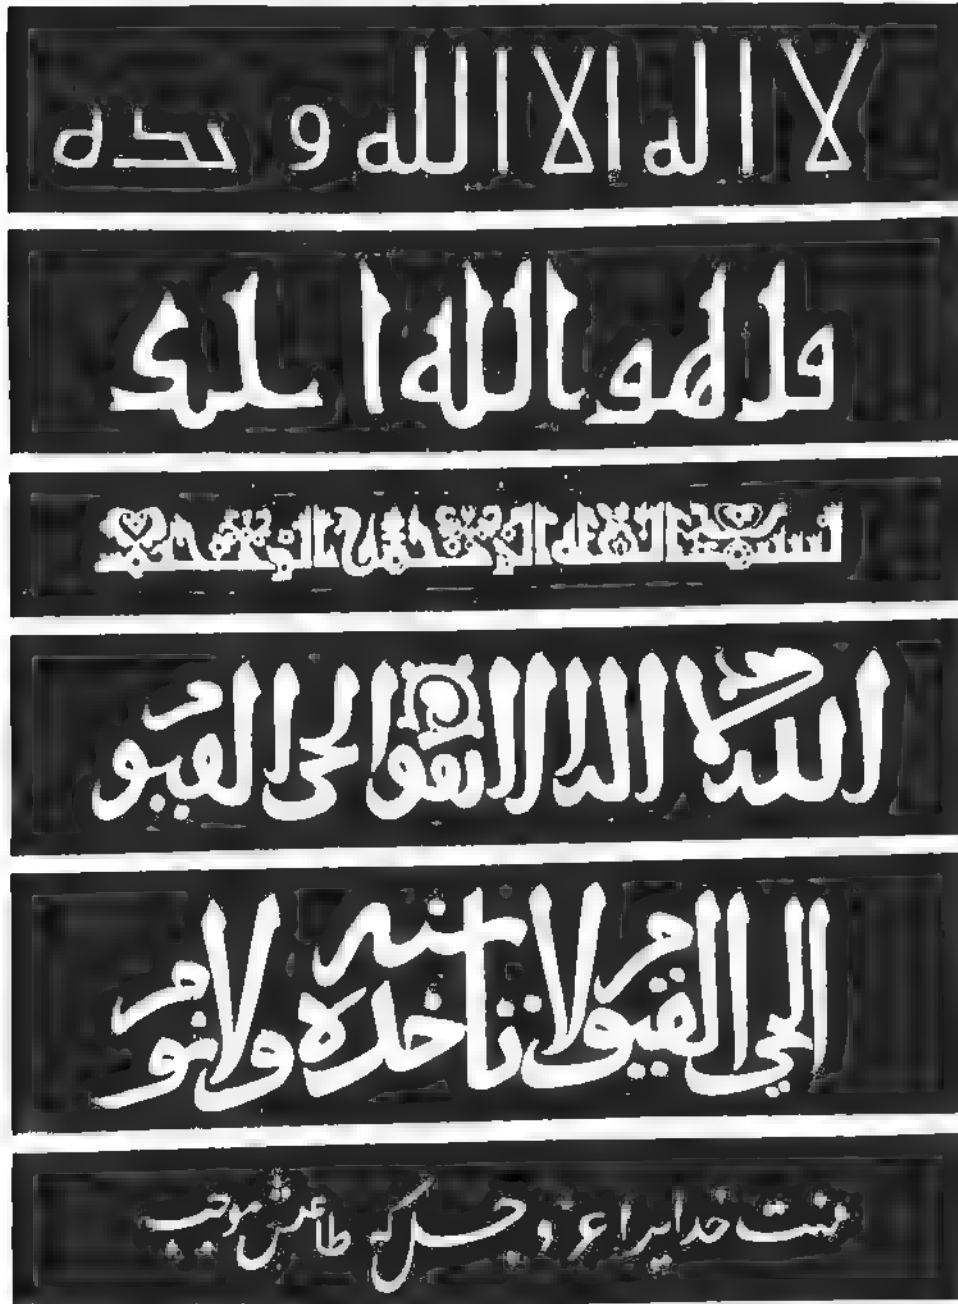 لا اله الا الله وحده
قل هو الله احد
بسم الله الرحمن الرحيم
الله لا اله الا هو الحى القيوم
الحي القيوم لا تاخذه سنه ولا نوم
منت خدایرا عز و جل که طاعتش موجب